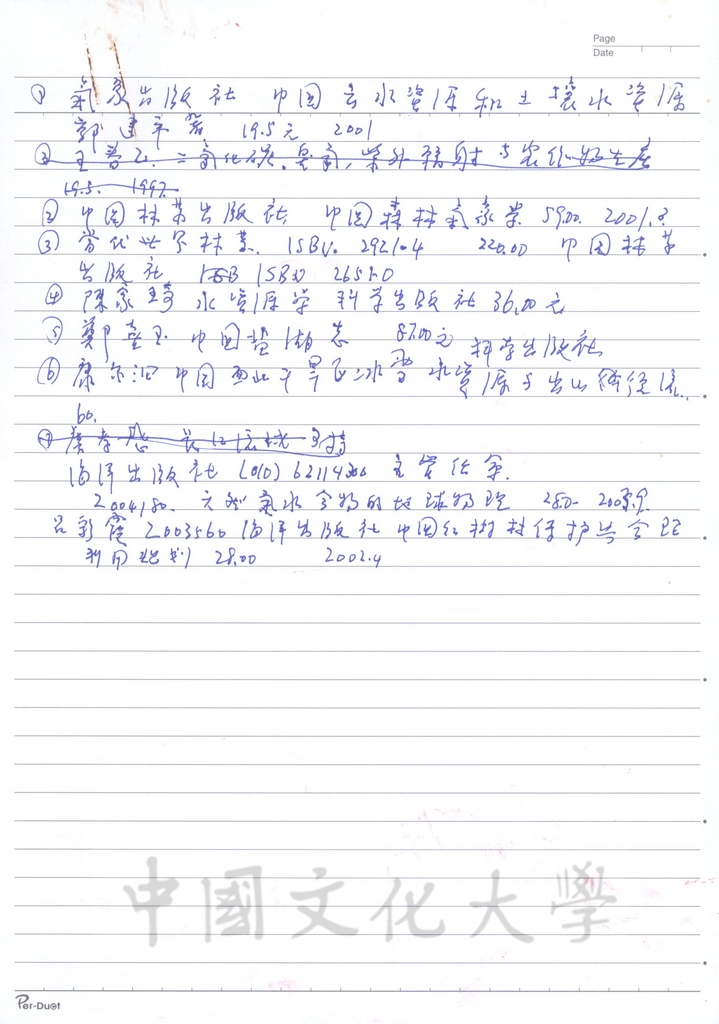 Page
Date
① 氣象出版社 中国云水資源和土壤水資源
郭建平著 19.5元 2001
② 王普 二氧化碳.臭氧,紫外辐射与農作物生産
19.5. 1997.
② 中国林业出版社 中国森林氣象学. 59.00. 2001.
③ 當代世界林業. ISBN. 2921-4 220.00 中国林业
出版社 ISBN 2651-0
④ 陳家琦 水資源学 科学出版社 36.00元
⑤ 鄭喜玉 中国盐湖志 87.00元 科学出版社
⑥ 康尔泗 中国西北干旱区冰雪水資源与出山徑流.
60.
⑦ 長江流域
海洋出版社 (010) 62114
2004180. 天然氣水合物的地球物理 280-
呂彩霞 2003560 海洋出版社 中国红树林保护与合理
利用規划 28.00 2002.4
中國文化大學
Per-Duet